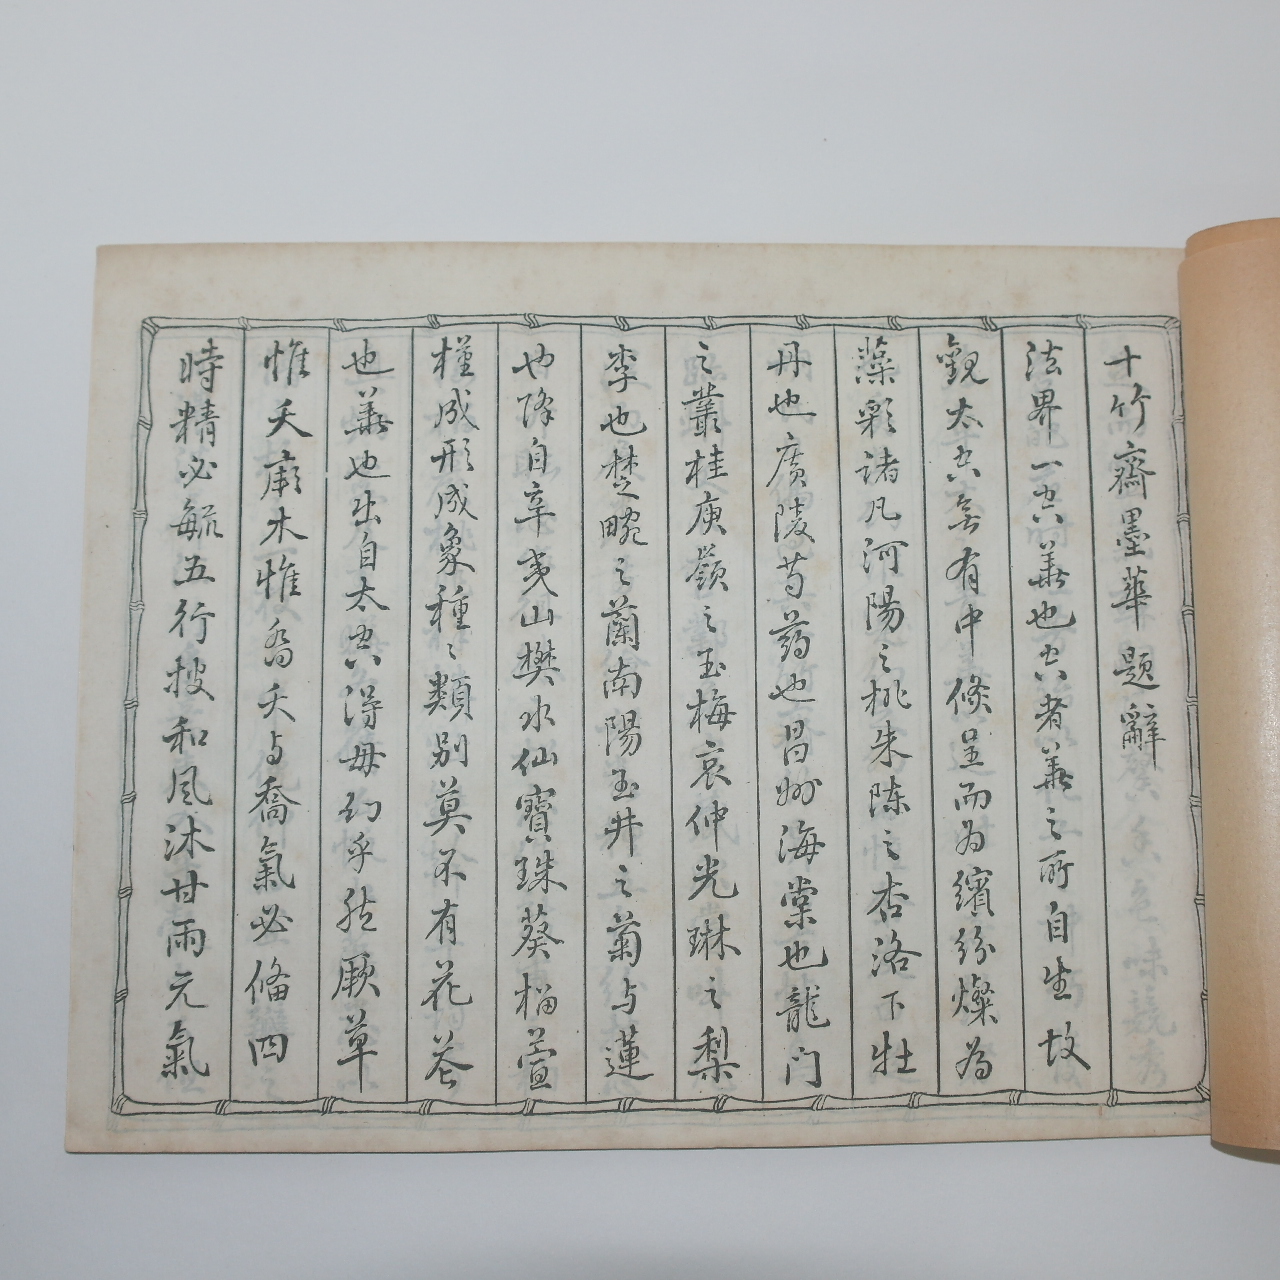 十竹齋墨華題辭
法界一空華也空者華之所自生故
觀太空無有中倏呈而為繽紛燦為
藻彩諸凡河陽之桃朱陳之杏洛下牡
丹也廣陵芍药也昌州海棠也龍门
之叢桂庾嶺之玉梅哀仲光琳之梨
李也楚畹之蘭南陽玉井之菊与蓮
也降自辛夷山樊水仙寶珠葵榴萱
槿成形成象種種類别莫不有花花
也華也出自太空得毋幻乎然厥草
惟夭厥木惟喬夭与喬氣必備四
時精必毓五行披和风沐甘雨元氣